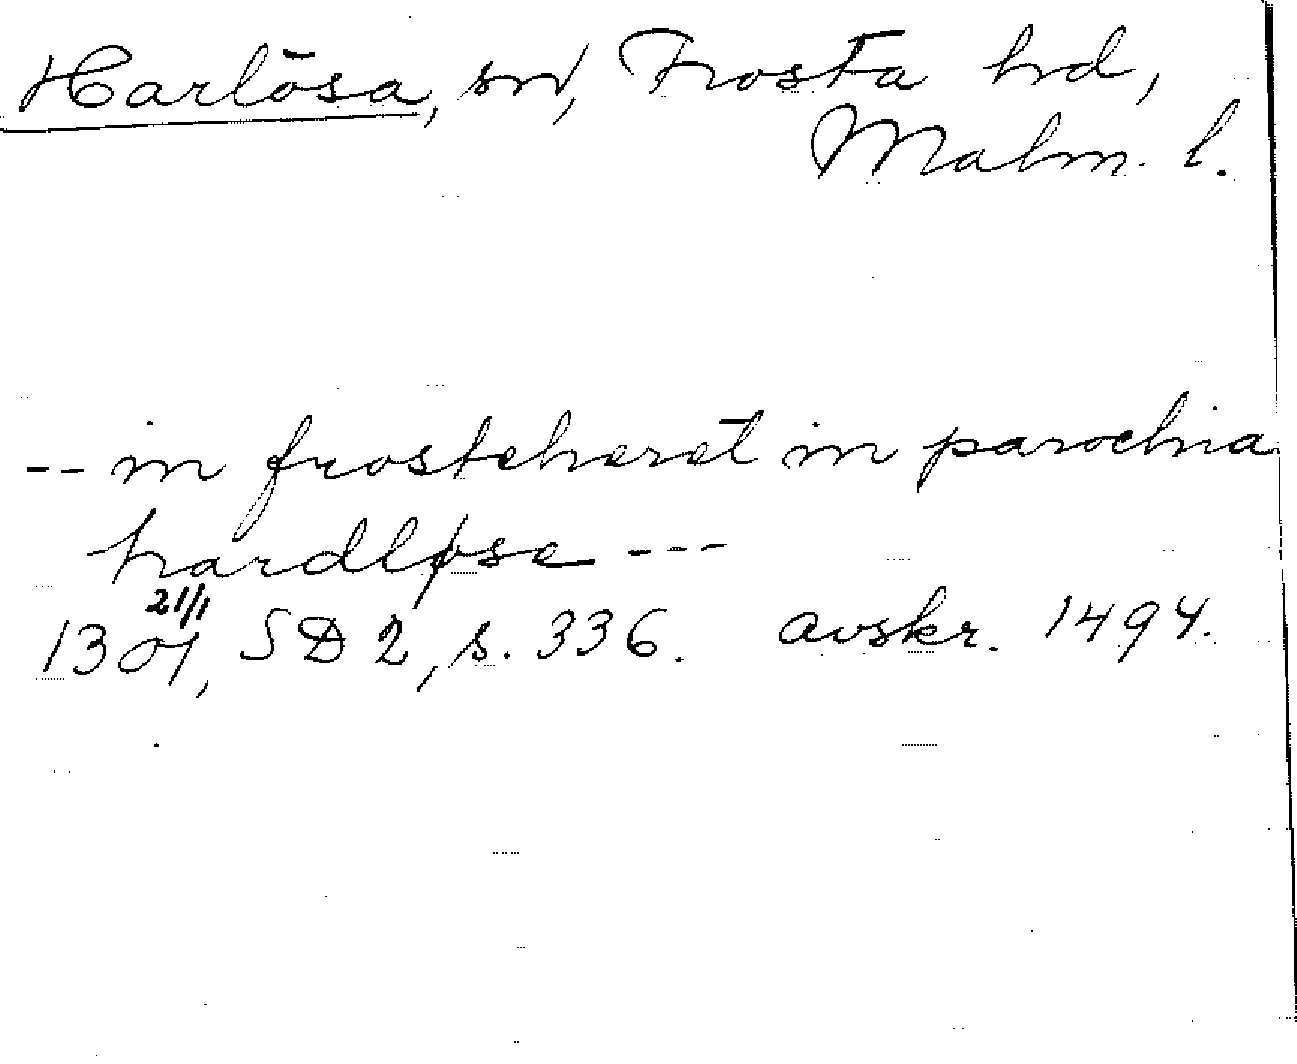 Harlösa, sn, Frosta hd,
Malm. l.
-- in frosteheret in parochia
hardløse ---
21/1
1307, SD 2, s. 336. avskr. 1494.